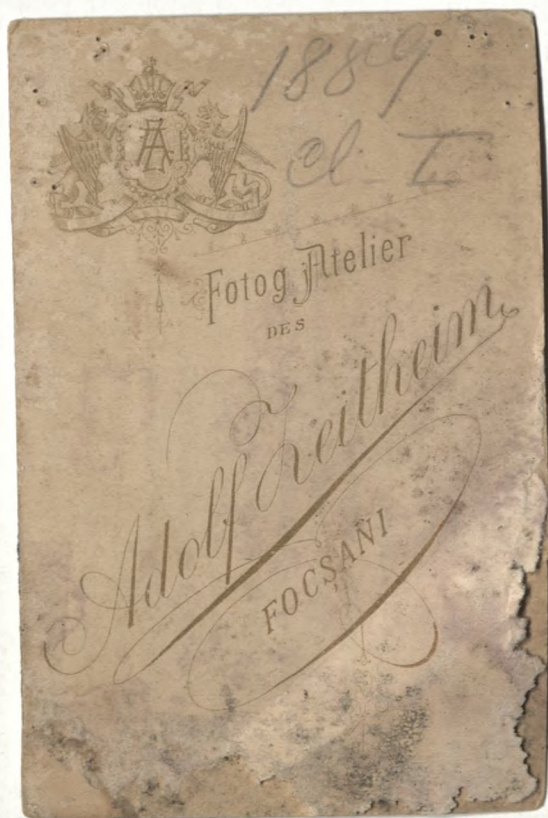 1889
cl. I
Fotog Atelier
DES
Adolf Zeitheim
FOCSANI